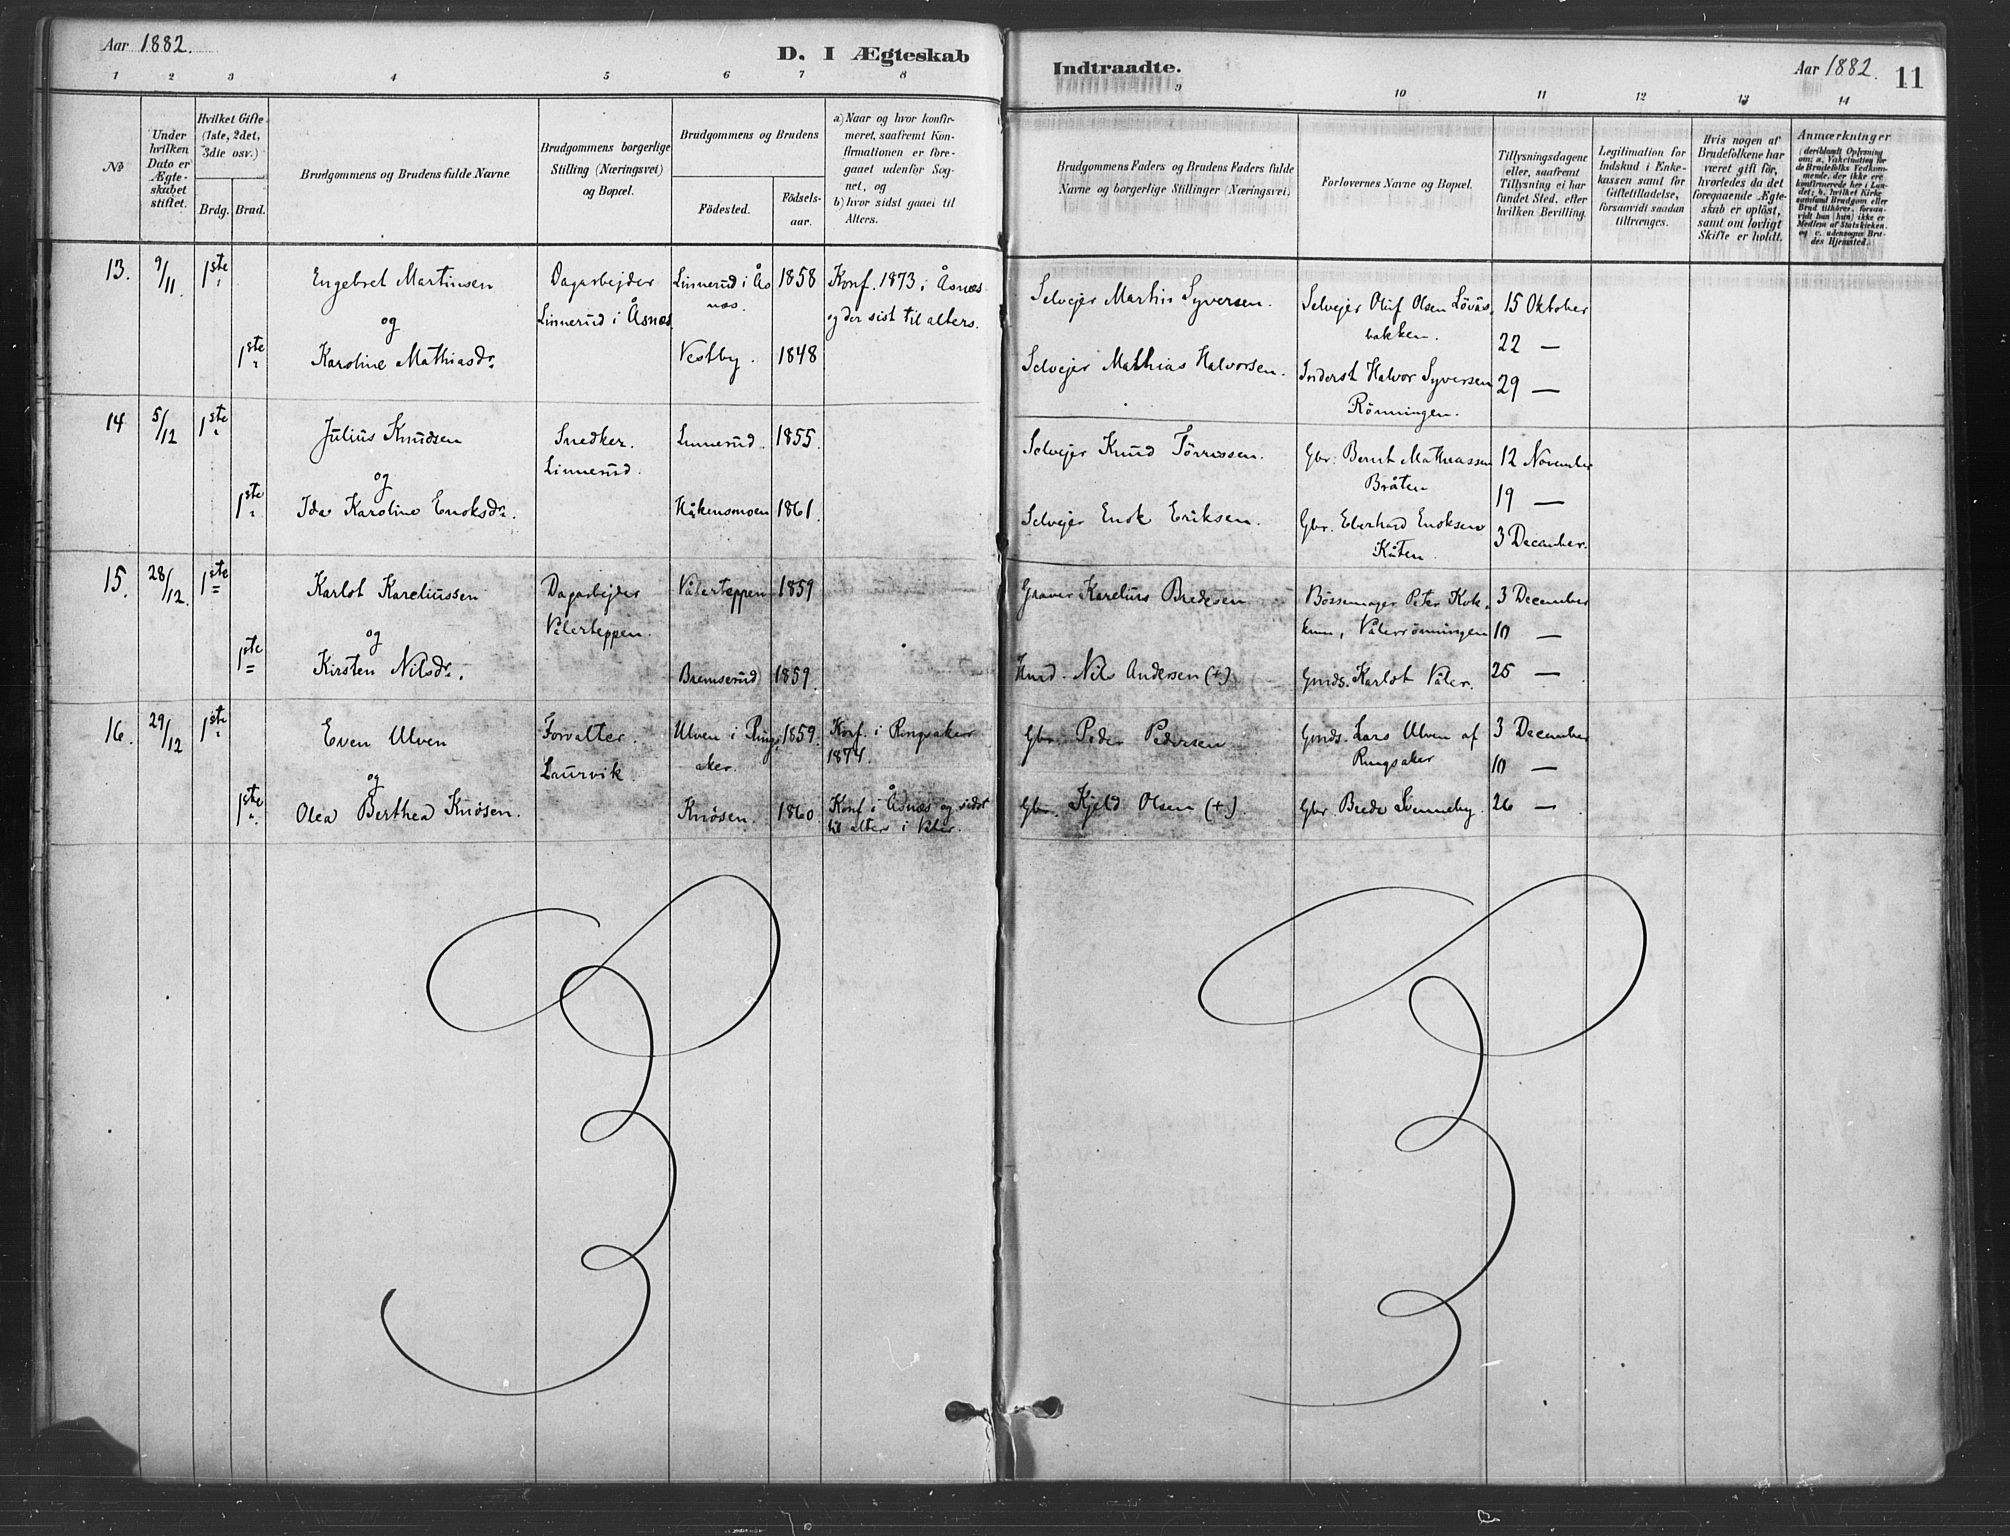 Aar 1882.
D. I Ægteskab Indtraadte.
Aar 1882. 11
1 2 3 4 5 6 7 8 9 10 11 12 13 14
№
Under hvilken Dato er Ægteskabet stiftet.
Hvilket Gifte (1ste, 2det, 3die osv.)
Brdg. Brud.
Brudgommens og Brudens fulde Navne
Brudgommens borgerlige Stilling (Næringsvei) og Bopæl.
Brudgommens og Brudens
Fødested.
Fødselsaar.
a) Naar og hvor konfirmeret, saafremt Konfirmationen er foregaaet udenfor Sognet, og
b) hvor sidst gaaet til Alters.
Brudgommens Faders og Brudens Faders fulde Navne og borgerlige Stillinger (Næringsvei)
Forlovernes Navne og Bopæl.
Tillysningsdagene eller, saafremt Tillysning ei har fundet Sted, efter hvilken Bevilling.
Legitimation for Indskud i Enkekassen samt for Giftetilladelse, forsaavidt saadan tiltrænges.
Hvis nogen af Brudefolkene har været gift før, hvorledes da det foregaaende Ægteskab er opløst, samt om lovligt Skifte er holdt.
Anmærkninger
13. 9/11. 1ste Engebret Martinsen Dagarbejder Linnerud i Ås 1858 Konf. 1873 i Åsnæs Selvejer Martin Syversen. Selvejer Oluf Olsen Lövås 15 Oktober
og Linnerud i Åsnæs næs. og der sist til alters. bakken. 22 —
1ste Karoline Mathiasdr. Vestby. 1848 Selvejer Mathias Halvorsen. Inderst Halvor Syversen 29 —
Rönningen.
14 5/12 1ste Julius Knudsen Snedker. Linnerud. 1855. Selvejer Knud Tørressen. Gbr. Bernt Mathiassen 12 November
og Linnerud. Bråten 19 —
1ste Ida Karoline Enoksdr. Håkensmoen 1861. Selvejer Enok Eriksen. Gbr. Eberhard Enoksen 3 December.
Kåten.
15. 28/12. 1ste Karlot Kareliussen Dagarbejder Vålerteppen 1859 Graver Karelius Bredesen Bössemager Peter Kok- 3 December
og Vålerteppen. kum, Vålerrönningen 10 —
1ste Kirsten Nilsdr. Bremserud 1859. Nils Andersen (+) Gmds. Karlot Våler. 25 —
16. 29/12 1ste Even Ulven Forvalter. Ulven i Rings 1859. Konf. i Ringsaker Gbr. Peder Pedersen Gmds. Lars Ulven af 3 December
og Laurvik aker. 1874. Ringsaker 10 —
1ste Olea Berthea Knösen. Knösen. 1860 Konf. i Åsnæs og sidst Gbr. Kjeld Olsen (+). Gbr. Brede Svenneby. 26 —
til alters i Våler.